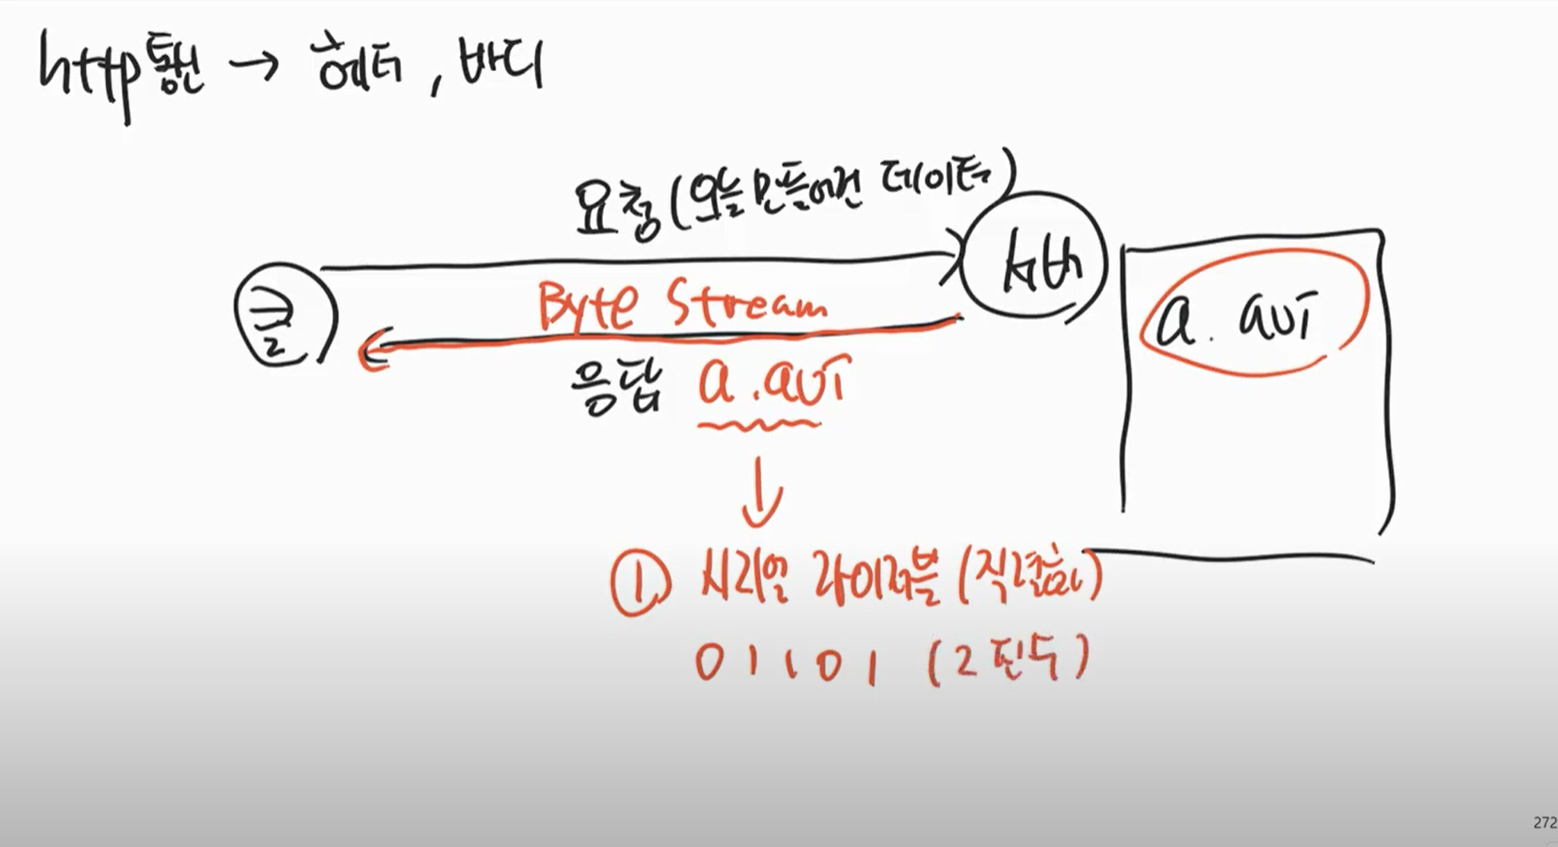 http통신 → 헤더, 바디
요청(오늘 만들어진 데이터)
클
서버
Byte Stream
a.avi
응답 a.avi
① 시리얼 라이저블 (직렬화)
01101 (2진수)
272